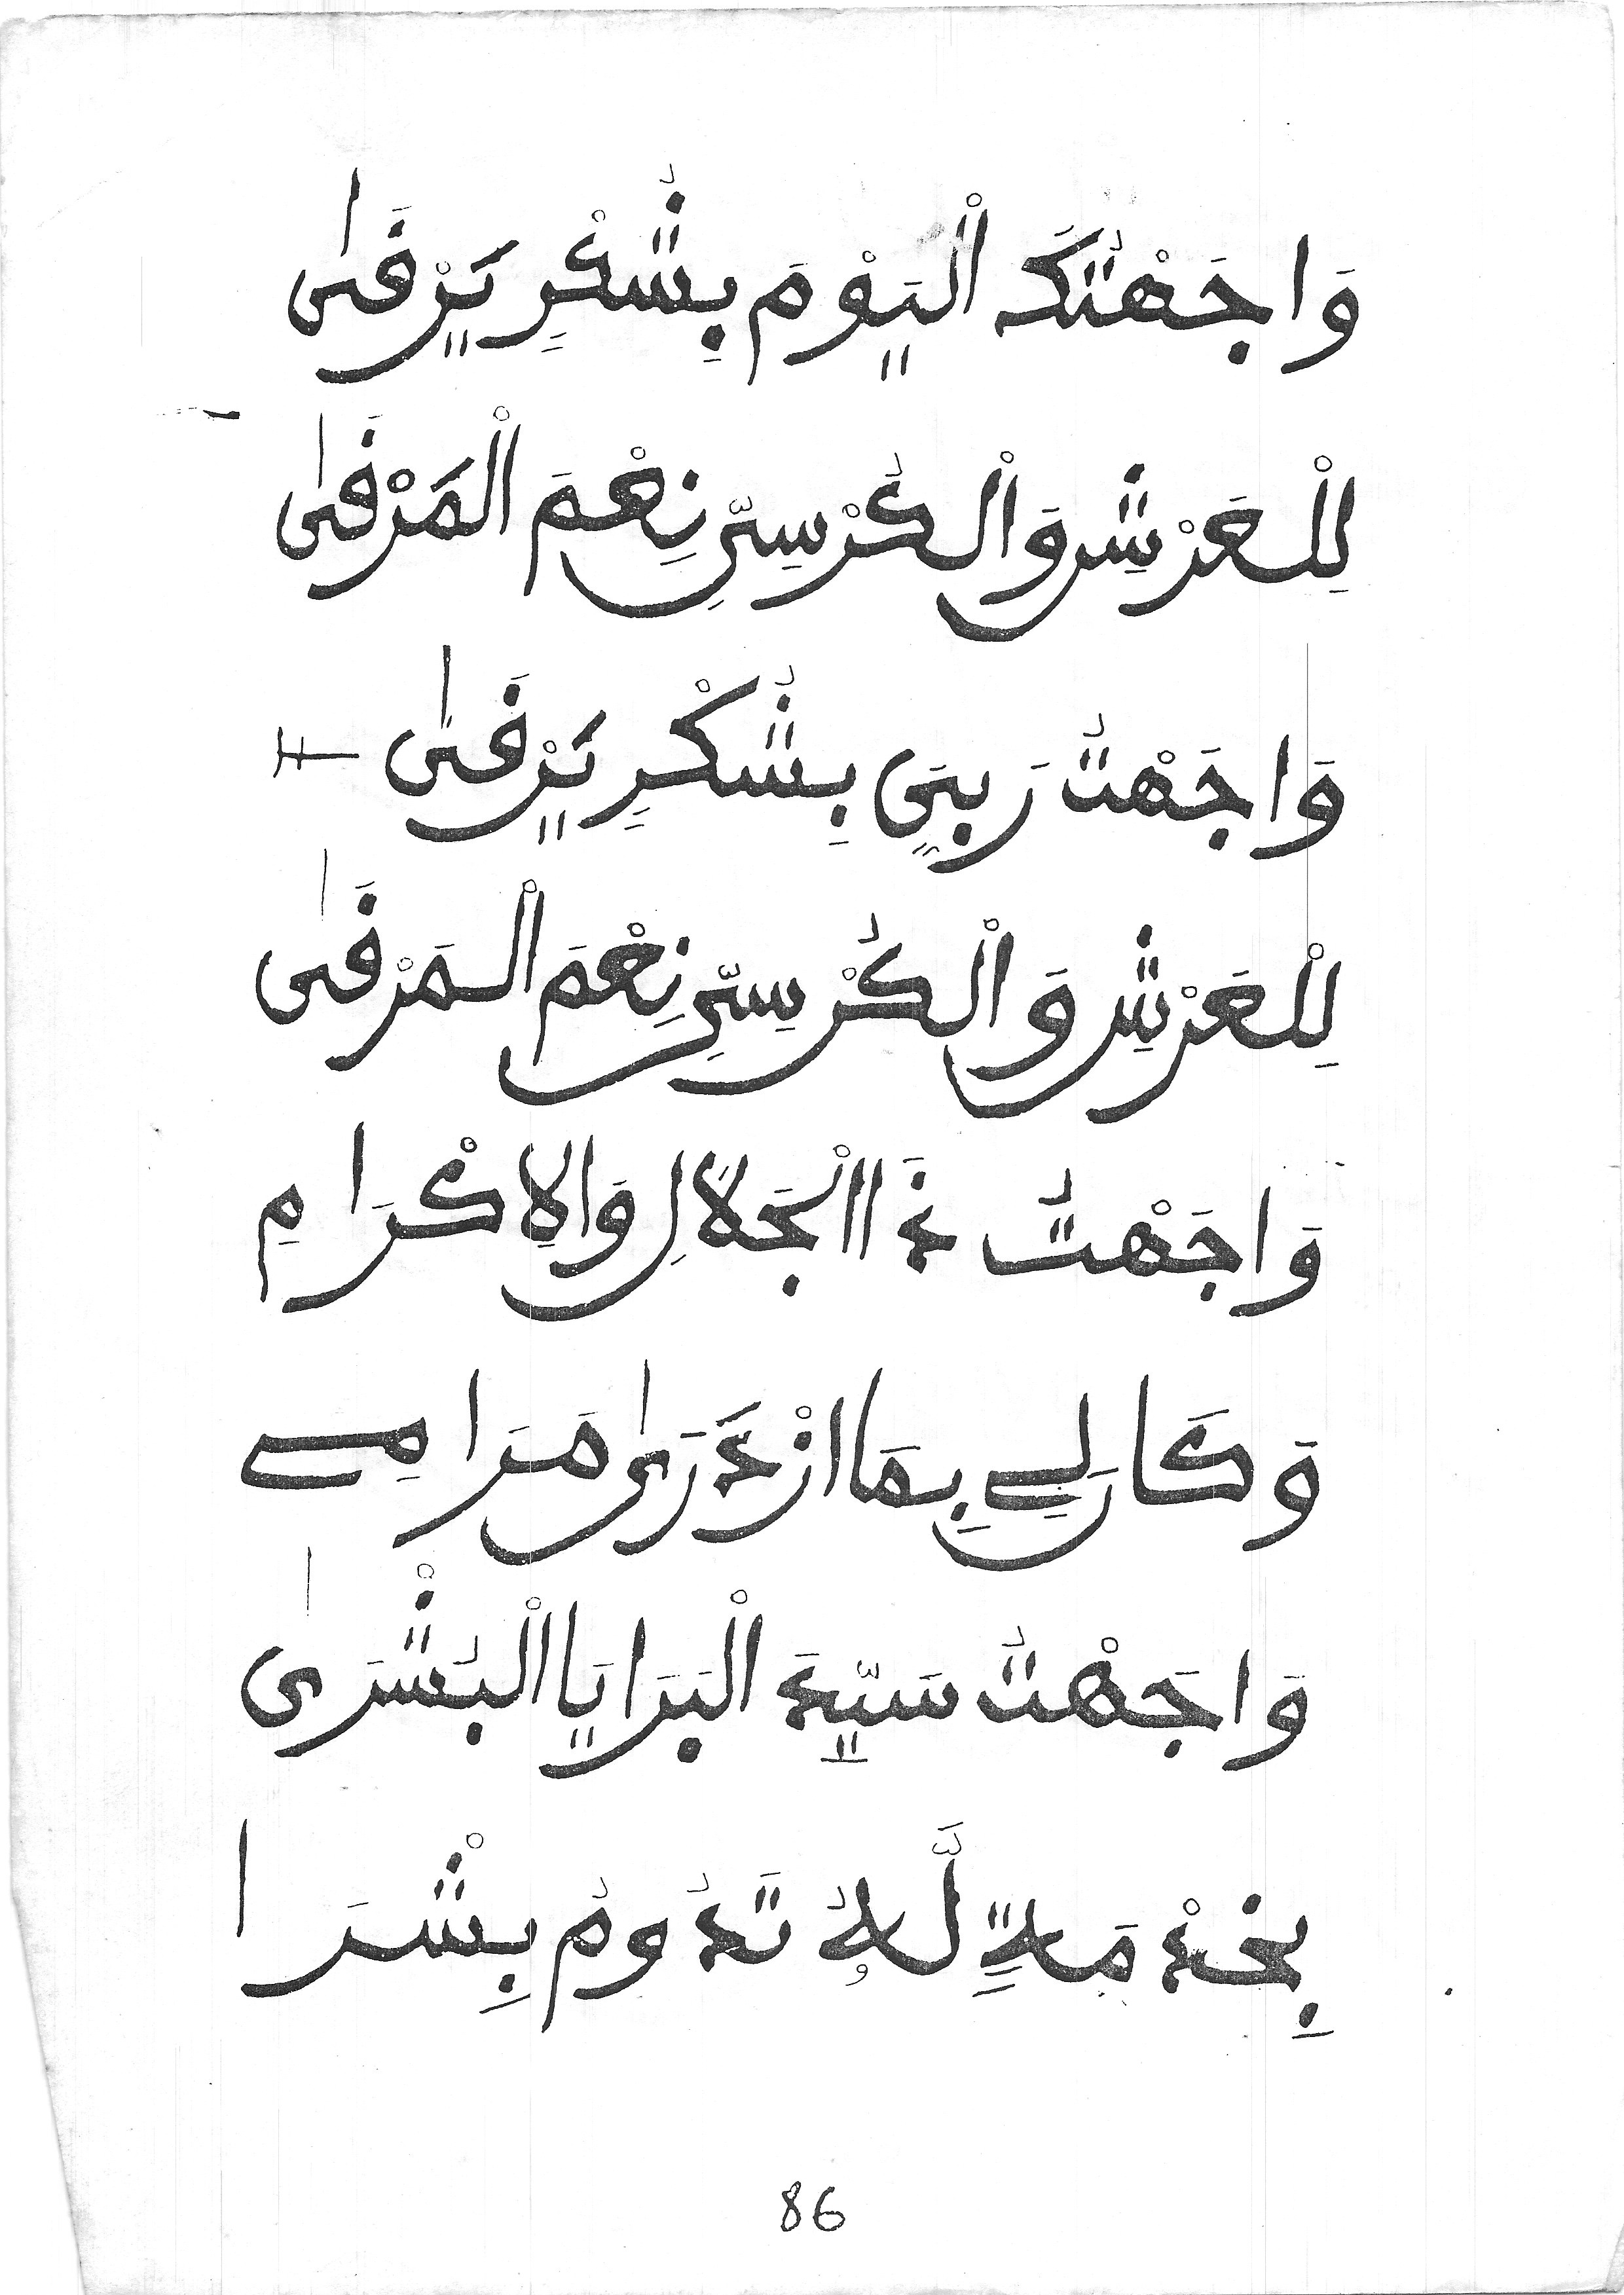 وَاجَهْتُكَ الْيَوْمَ بِشُكْرٍ يَرْقَىٰ
لِلْعَرْشِ وَالْكُرْسِيِّ نِعْمَ الْمَرْقَىٰ
وَاجَهْتُ رَبِّي بِشُكْرٍ يَرْقَىٰ
لِلْعَرْشِ وَالْكُرْسِيِّ نِعْمَ الْمَرْقَىٰ
وَاجَهْتُ ذَا الْجَلَالِ وَالِاكْرَامِ
وَكَانَ لِي بِمَا ازْدَرَىٰ مَرَامِي
وَاجَهْتُ سَيِّدَ الْبَرَايَا الْبُشْرَىٰ
بِخَدْمَةٍ لَهُ تَدُومُ بِشْرَا
86